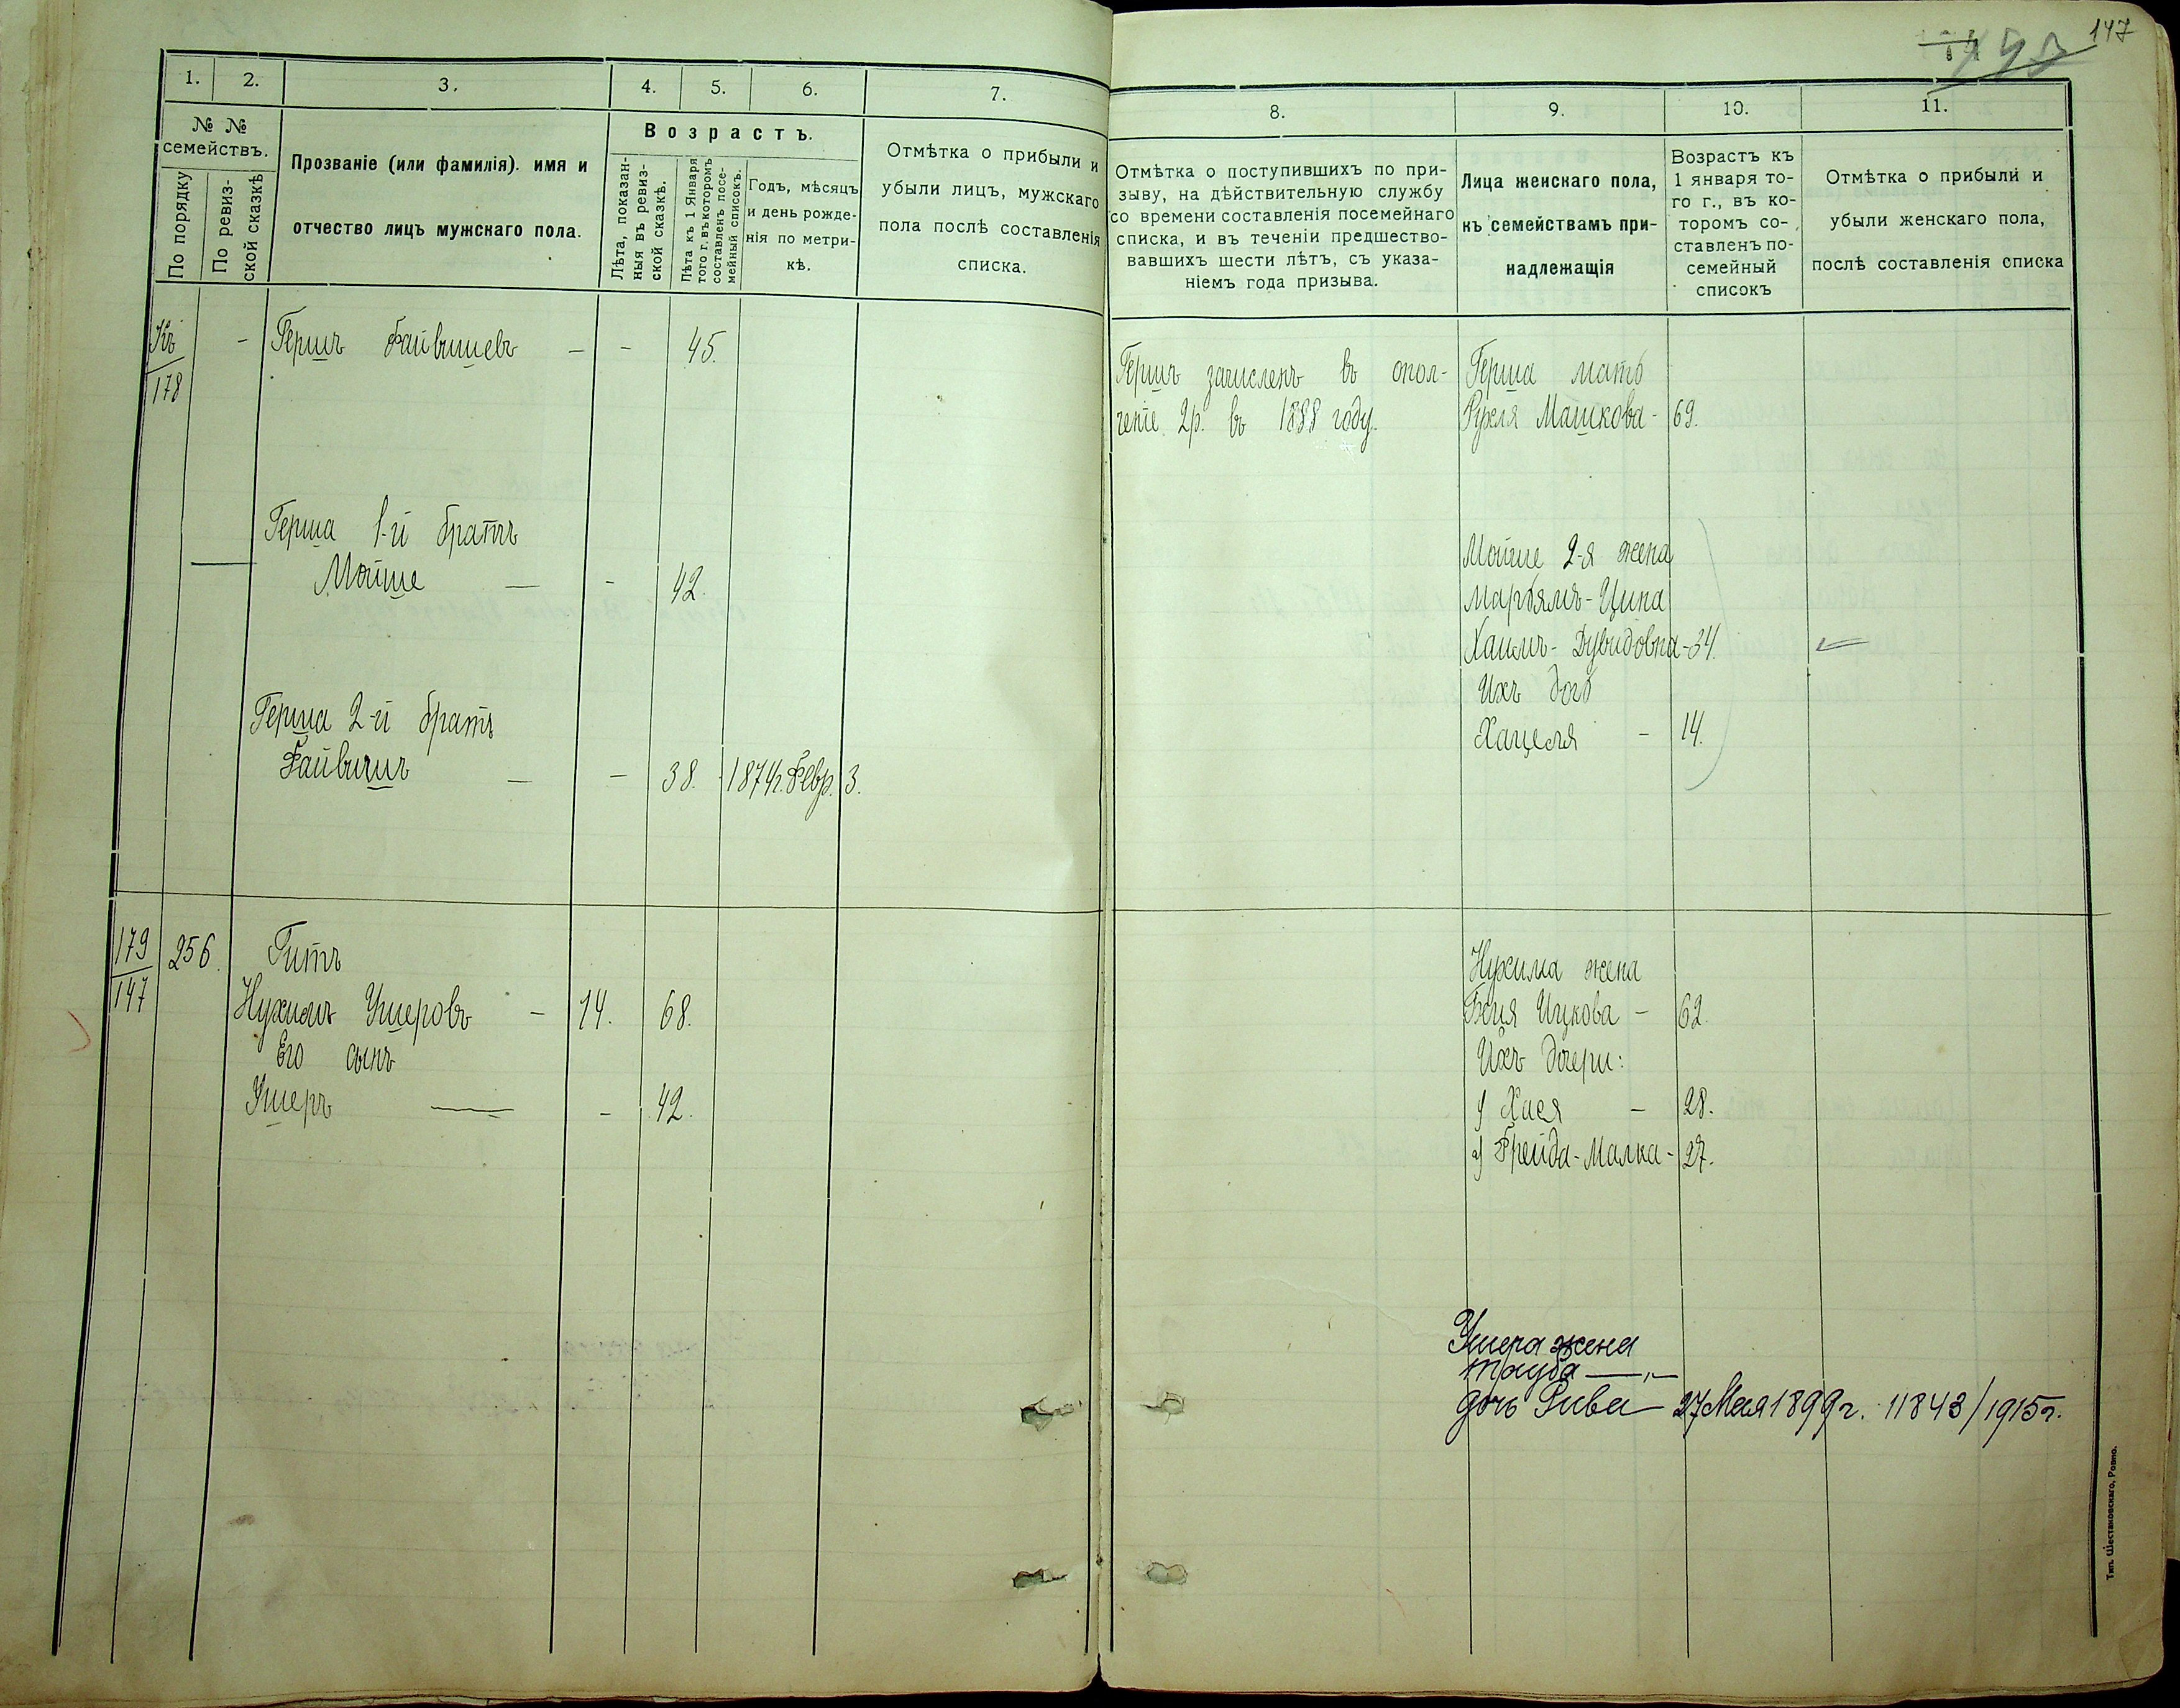 147
1.
2.
3.
4.
5.
6.
7.
№ №
семействъ.
По порядку
По ревиз-
ской сказкѣ
Прозваніе (или фамилія). имя и
отчество лицъ мужскаго пола.
Возрастъ.
Лѣта, показан-
ныя въ ревиз-
ской сказкѣ.
Лѣта къ 1 Января
того г. въ которомъ
составленъ посе-
мейный списокъ.
Годъ, мѣсяцъ
и день рожде-
нія по метри-
кѣ.
Отмѣтка о прибыли и
убыли лицъ, мужскаго
пола послѣ составленія
списка.
Къ
178
-
Гершъ Файвишевъ - - 45.
Герша 1-й братъ
Мойше - - 42.
Герша 2-й братъ
Файвишъ - - 38. 1874г. Февр. 3.
179
147
256.
Гитъ
Нухимъ Ушеровъ - 14. 68.
Его сынъ
Ушеръ - - 42.
8.
9.
10.
11.
Отмѣтка о поступившихъ по при-
зыву, на дѣйствительную службу
со времени составленія посемейнаго
списка, и въ теченіи предшество-
вавшихъ шести лѣтъ, съ указа-
ніемъ года призыва.
Лица женскаго пола,
къ семействамъ при-
надлежащія
Возрастъ къ
1 января то-
го г., въ ко-
торомъ со-
ставленъ по-
семейный
списокъ
Отмѣтка о прибыли и
убыли женскаго пола,
послѣ составленія списка
Гершъ зачисленъ въ опол-
ченіе 2р. въ 1888 году.
Герша мать
Рухля Машкова - 69.
Мойше 2-я жена
Марьямъ-Цина
Хаимъ-Дувидовна - 34.
Ихъ дочь
Хацеля - 14.
Нухима жена
Бейля Ицкова - 62.
Ихъ дочери:
1) Хася - 28.
2) Фрейда-Малка - 27.
Ушера жена
Тауба —„—
дочь Рива 27 Мая 1899г. 11843/1915г.
Тип. Шестаковскаго, Ровно.